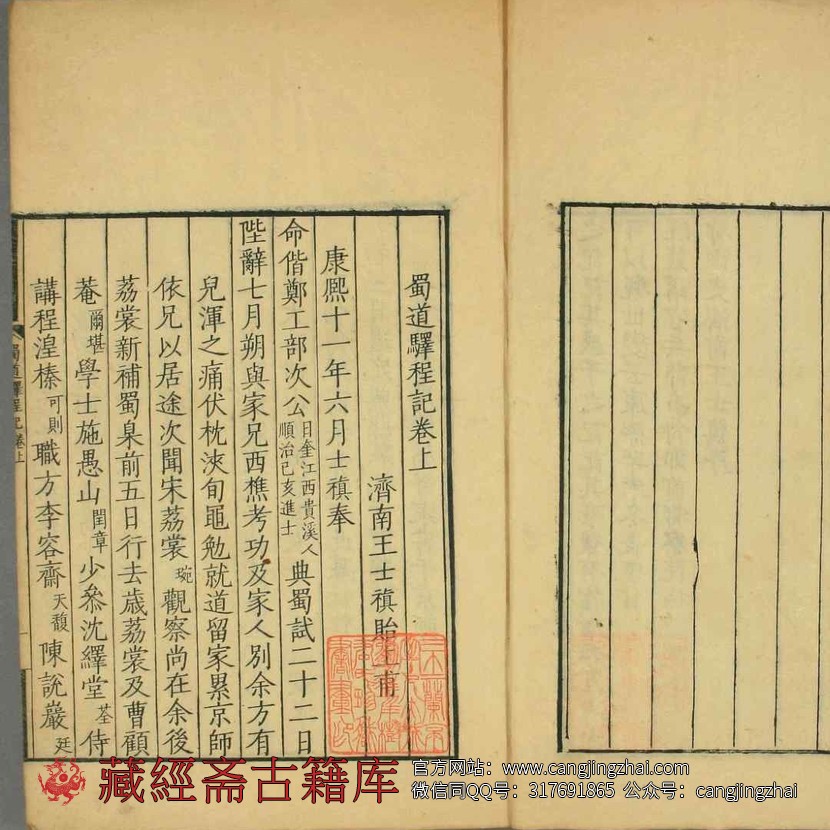 蜀道驛程記卷上
濟南王士禛貽上甫
康熙十一年六月士禛奉
命偕鄭工部次公日奎江西貴溪人順治己亥進士典蜀試二十二日
陛辭七月朔與家兄西樵考功及家人別余方有
兒渾之痛伏枕浹旬黽勉就道留家累京師
依兄以居途次聞宋荔裳琬觀察尚在余後
荔裳新補蜀臬前五日行去歲荔裳及曹顧
菴爾堪學士施愚山閏章少參沈繹堂荃侍
講程湟榛可則職方李容齋天馥陳說巖廷
蜀道驛程記卷上
一
藏經斋古籍库
官方网站：www.cangjingzhai.com
微信同QQ号：317691865 公众号：cangjingzhai